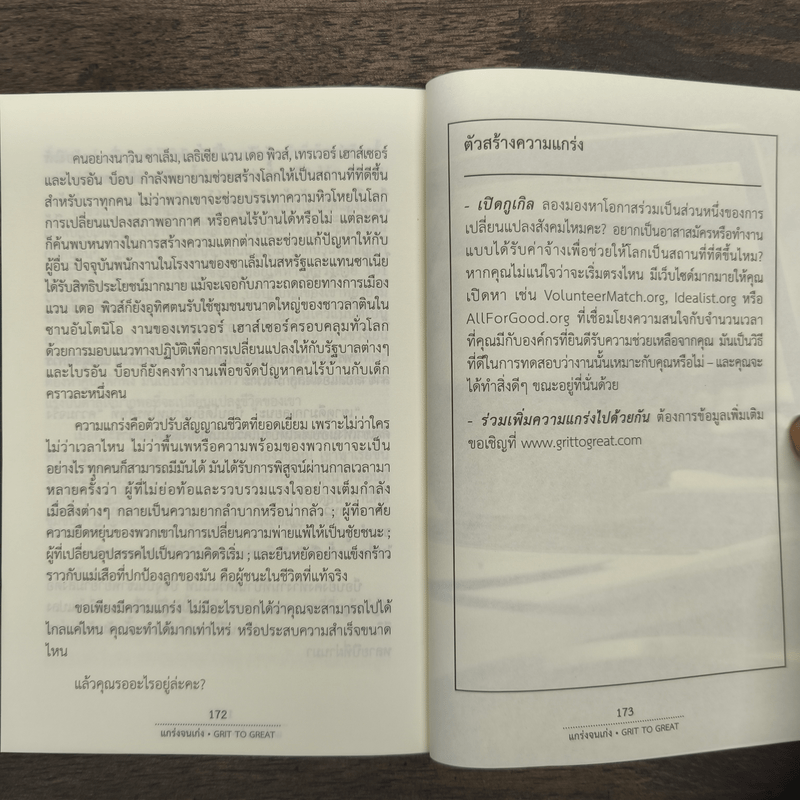 คนอย่างนาวิน ซาเล็ม, เลธิเซีย แวน เดอ พิวส์, เทรเวอร์ เฮาส์เซอร์
และไบรอัน บ็อบ กำลังพยายามช่วยสร้างโลกให้เป็นสถานที่ที่ดีขึ้น
สำหรับเราทุกคน ไม่ว่าพวกเขาจะช่วยบรรเทาความหิวโหยในโลก
การเปลี่ยนแปลงสภาพอากาศ หรือคนไร้บ้านได้หรือไม่ แต่ละคน
ก็ค้นพบหนทางในการสร้างความแตกต่างและช่วยแก้ปัญหาให้กับ
ผู้อื่น ปัจจุบันพนักงานในโรงงานของซาเล็มในสหรัฐและแทนซาเนีย
ได้รับสิทธิประโยชน์มากมาย แม้จะเจอกับภาวะถดถอยทางการเมือง
แวน เดอ พิวส์ก็ยังอุทิศตนรับใช้ชุมชนขนาดใหญ่ของชาวลาตินใน
ซานอันโตนิโอ งานของเทรเวอร์ เฮาส์เซอร์ครอบคลุมทั่วโลก
ด้วยการมอบแนวทางปฏิบัติเพื่อการเปลี่ยนแปลงให้กับรัฐบาลต่างๆ
และไบรอัน บ็อบก็ยังคงทำงานเพื่อขจัดปัญหาคนไร้บ้านกับเด็ก
คราวละหนึ่งคน
ความแกร่งคือตัวปรับสัญญาณชีวิตที่ยอดเยี่ยม เพราะไม่ว่าใคร
ไม่ว่าเวลาไหน ไม่ว่าพื้นเพหรือความพร้อมของพวกเขาจะเป็น
อย่างไร ทุกคนก็สามารถมีมันได้ มันได้รับการพิสูจน์ผ่านกาลเวลามา
หลายครั้งว่า ผู้ที่ไม่ย่อท้อและรวบรวมแรงใจอย่างเต็มกำลัง
เมื่อสิ่งต่างๆ กลายเป็นความยากลำบากหรือน่ากลัว ; ผู้ที่อาศัย
ความยืดหยุ่นของพวกเขาในการเปลี่ยนความพ่ายแพ้ให้เป็นชัยชนะ ;
ผู้ที่เปลี่ยนอุปสรรคไปเป็นความคิดริเริ่ม ; และยืนหยัดอย่างแข็งกร้าว
ราวกับแม่เสือที่ปกป้องลูกของมัน คือผู้ชนะในชีวิตที่แท้จริง
ขอเพียงมีความแกร่ง ไม่มีอะไรบอกได้ว่าคุณจะสามารถไปได้
ไกลแค่ไหน คุณจะทำได้มากเท่าไหร่ หรือประสบความสำเร็จขนาด
ไหน
แล้วคุณรออะไรอยู่ล่ะคะ?
172
แกร่งจนเก่ง • GRIT TO GREAT
ตัวสร้างความแกร่ง
- เปิดกูเกิล ลองมองหาโอกาสร่วมเป็นส่วนหนึ่งของการ
เปลี่ยนแปลงสังคมไหมคะ? อยากเป็นอาสาสมัครหรือทำงาน
แบบได้รับค่าจ้างเพื่อช่วยให้โลกเป็นสถานที่ที่ดีขึ้นไหม?
หากคุณไม่แน่ใจว่าจะเริ่มตรงไหน มีเว็บไซต์มากมายให้คุณ
เปิดหา เช่น VolunteerMatch.org, Idealist.org หรือ
AllForGood.org ที่เชื่อมโยงความสนใจกับจำนวนเวลา
ที่คุณมีกับองค์กรที่ยินดีรับความช่วยเหลือจากคุณ มันเป็นวิธี
ที่ดีในการทดสอบว่างานนั้นเหมาะกับคุณหรือไม่ – และคุณจะ
ได้ทำสิ่งดีๆ ขณะอยู่ที่นั่นด้วย
- ร่วมเพิ่มความแกร่งไปด้วยกัน ต้องการข้อมูลเพิ่มเติม
ขอเชิญที่ www.grittogreat.com
173
แกร่งจนเก่ง • GRIT TO GREAT